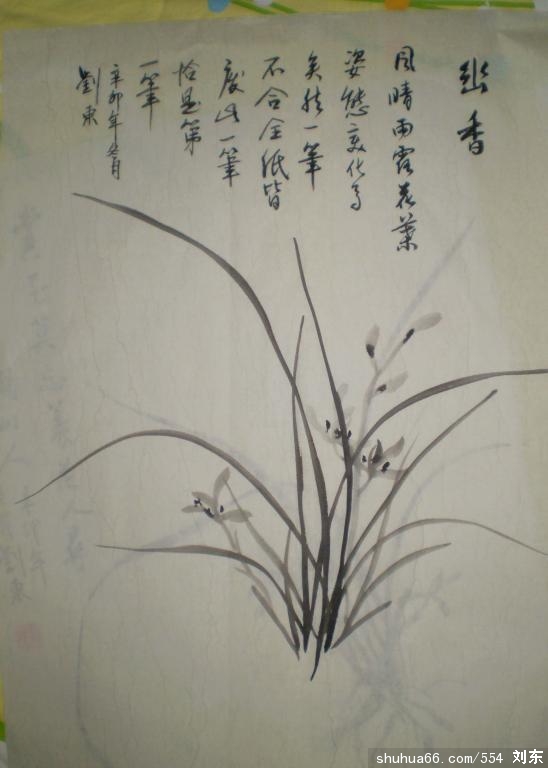 幽香
風晴雨露花葉
姿態变化多
矣然一筆
不合全紙皆
廢此一筆
恰是第
一筆
辛卯年 月
劉東
shuhua66.com/554 刘东